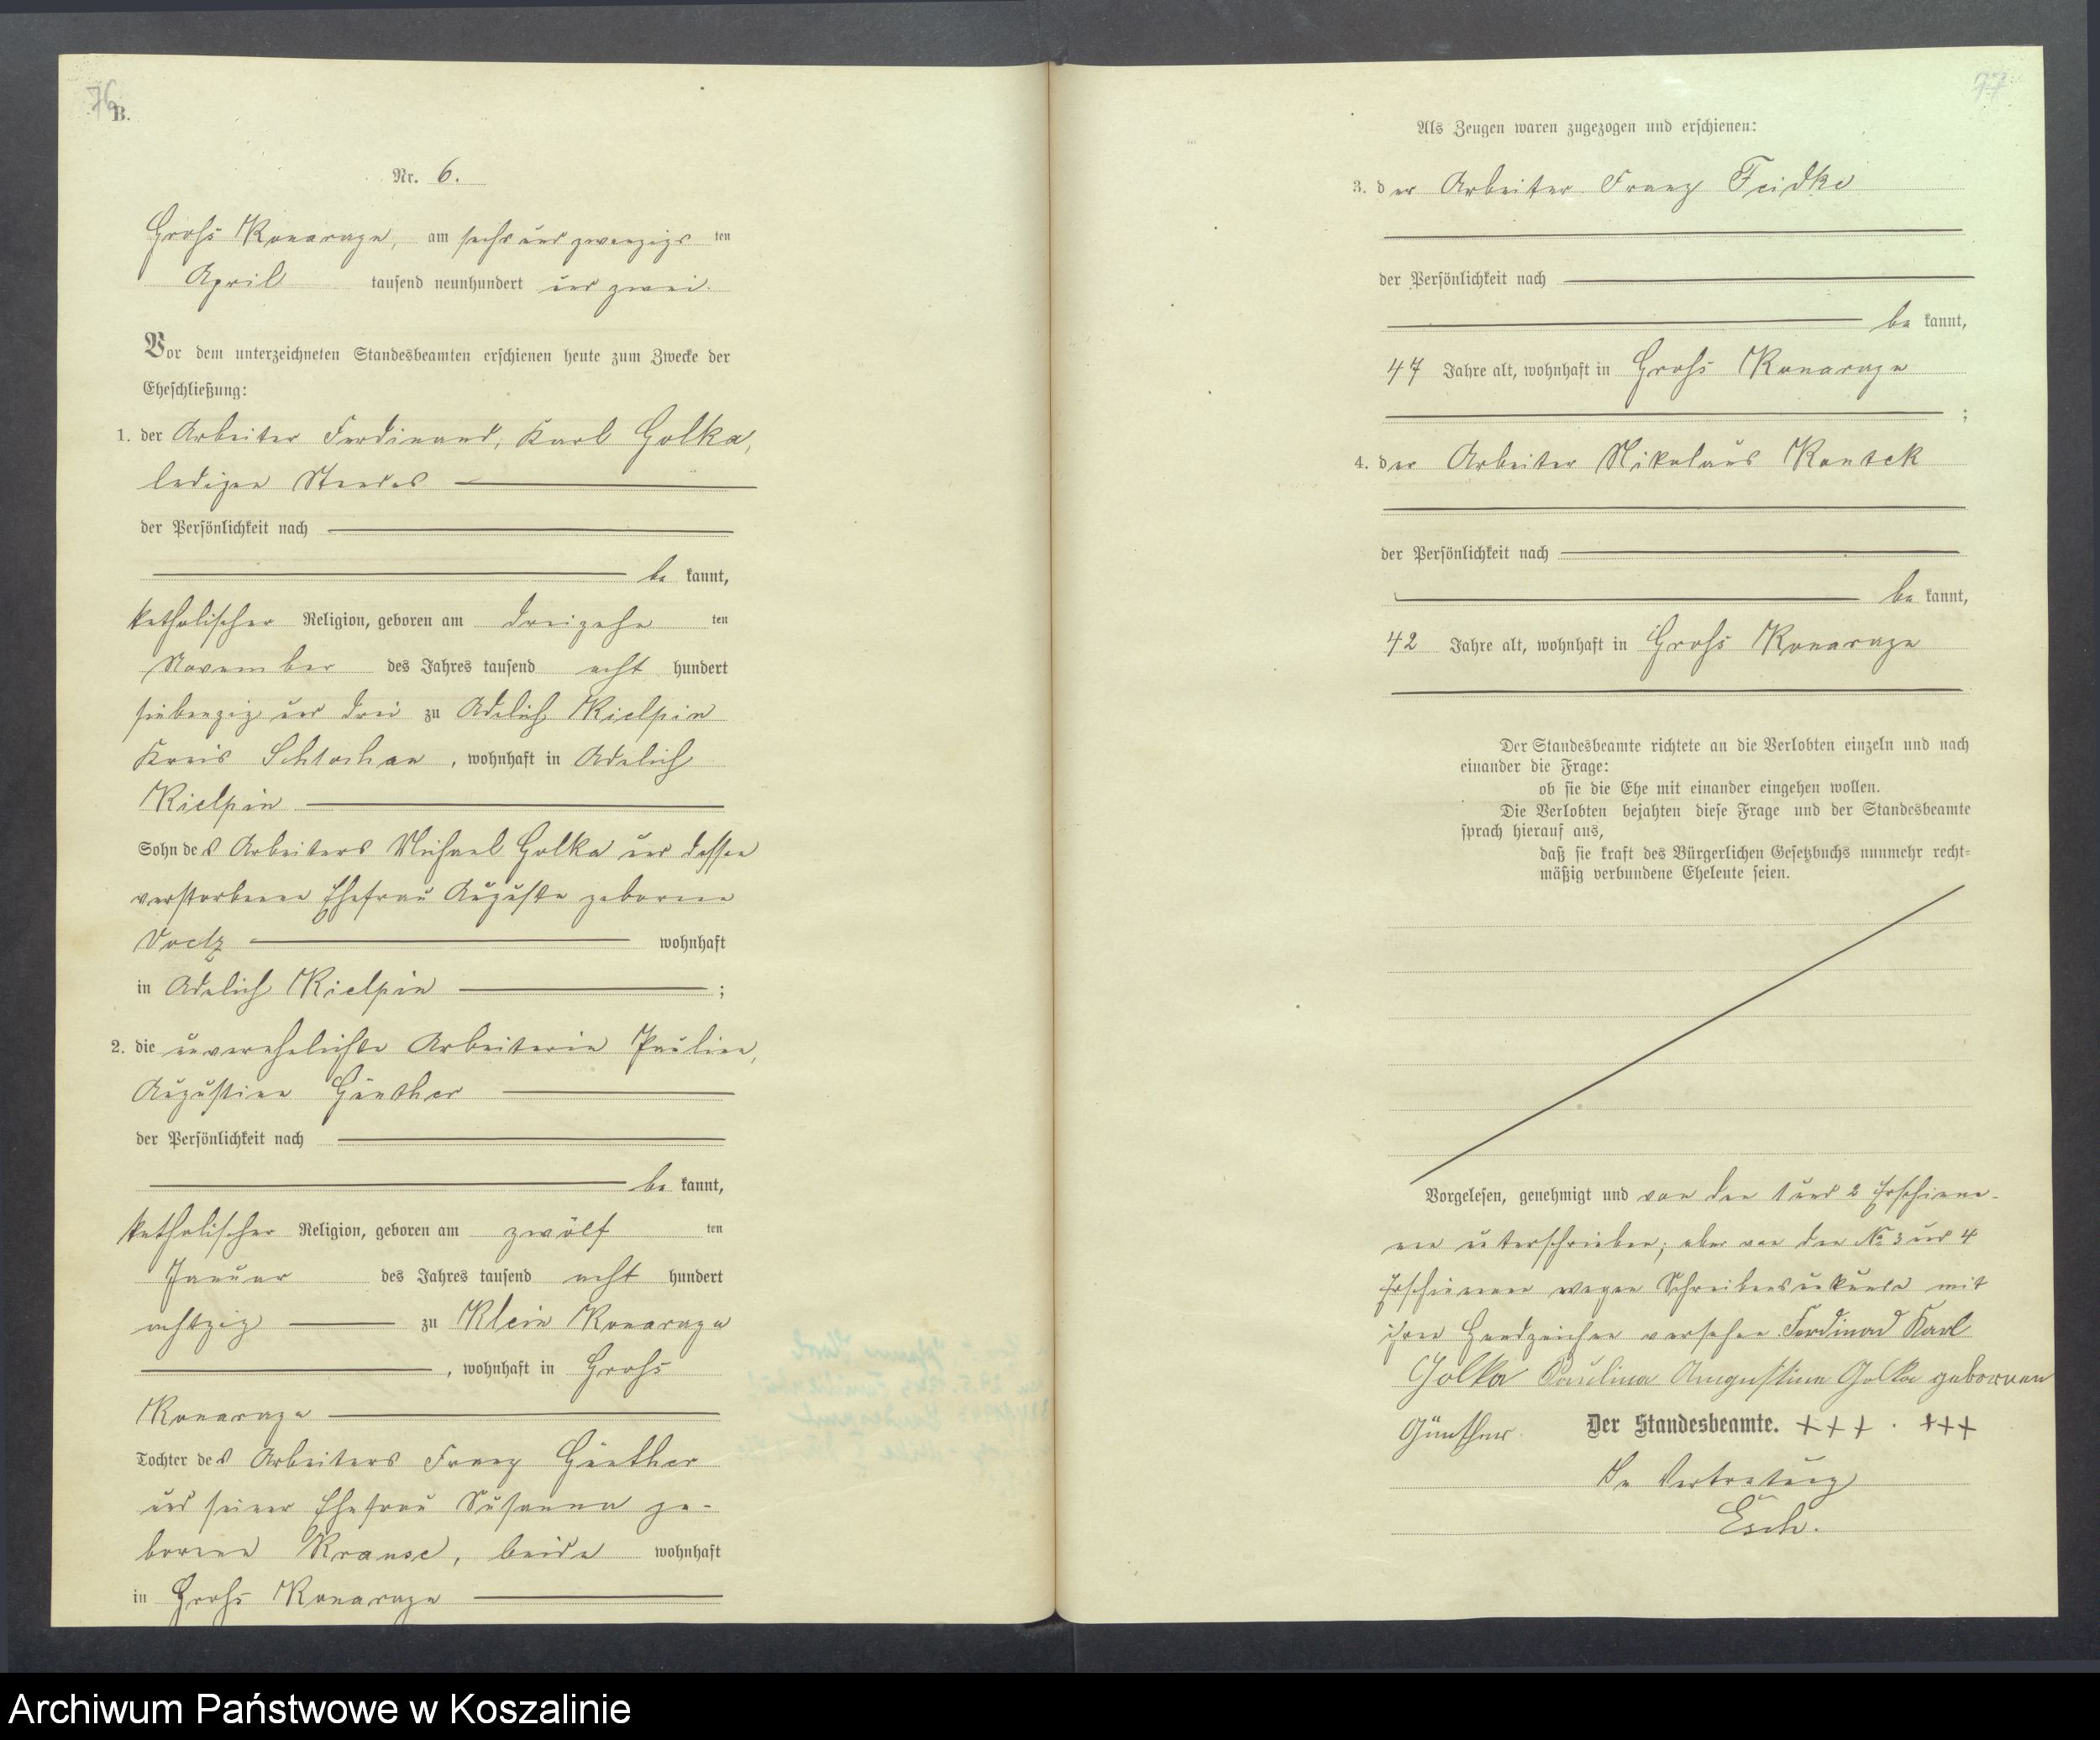 76
B.
Nr. 6.
Groß Konarzyn, am sechs und zwanzigs ten
April tausend neunhundert und zwei.
Vor dem unterzeichneten Standesbeamten erschienen heute zum Zwecke der
Eheschließung:
1. der Arbeiter Ferdinand, Karl Golka,
ledigen Standes
der Persönlichkeit nach
be kannt,
katholischer Religion, geboren am dreizehn ten
November des Jahres tausend acht hundert
siebenzig und drei zu Adelich Kielpin
Kreis Schlochau, wohnhaft in Adelich
Kielpin
Sohn des Arbeiters Michael Golka und dessen
verstorbenen Ehefrau Auguste geborene
wohnhaft
in Adelich Kielpin ;
2. die unverehelichte Arbeiterin Pauline,
Augustine Günther
der Persönlichkeit nach
be kannt,
katholischer Religion, geboren am zwölf ten
Januar des Jahres tausend acht hundert
achtzig zu Klein Konarzyn
, wohnhaft in Groß
Konarzyn
Tochter des Arbeiters Franz Günther
und seiner Ehefrau Susanna ge-
borene Krause, beide wohnhaft
in Groß Konarzyn
77
Als Zeugen waren zugezogen und erschienen:
3. der Arbeiter Franz Feidke
der Persönlichkeit nach
be kannt,
47 Jahre alt, wohnhaft in Groß Konarzyn
;
4. der Arbeiter Nikolaus Kontek
der Persönlichkeit nach
be kannt,
42 Jahre alt, wohnhaft in Groß Konarzyn
Der Standesbeamte richtete an die Verlobten einzeln und nach
einander die Frage:
ob sie die Ehe mit einander eingehen wollen.
Die Verlobten bejahten diese Frage und der Standesbeamte
sprach hierauf aus,
daß sie kraft des Bürgerlichen Gesetzbuchs nunmehr recht-
mäßig verbundene Eheleute seien.
Vorgelesen, genehmigt und von den 1 und 2 Erschiene-
nen unterschrieben; aber von den No 3 und 4
Erschienenen wegen Schreibensunkunde mit
ihren Handzeichen versehen. Ferdinad Karl
Golka Paulina Augustina Golka geborenen
Günther Der Standesbeamte. +++ . +++
In Vertretung
Esch.
Archiwum Państwowe w Koszalinie